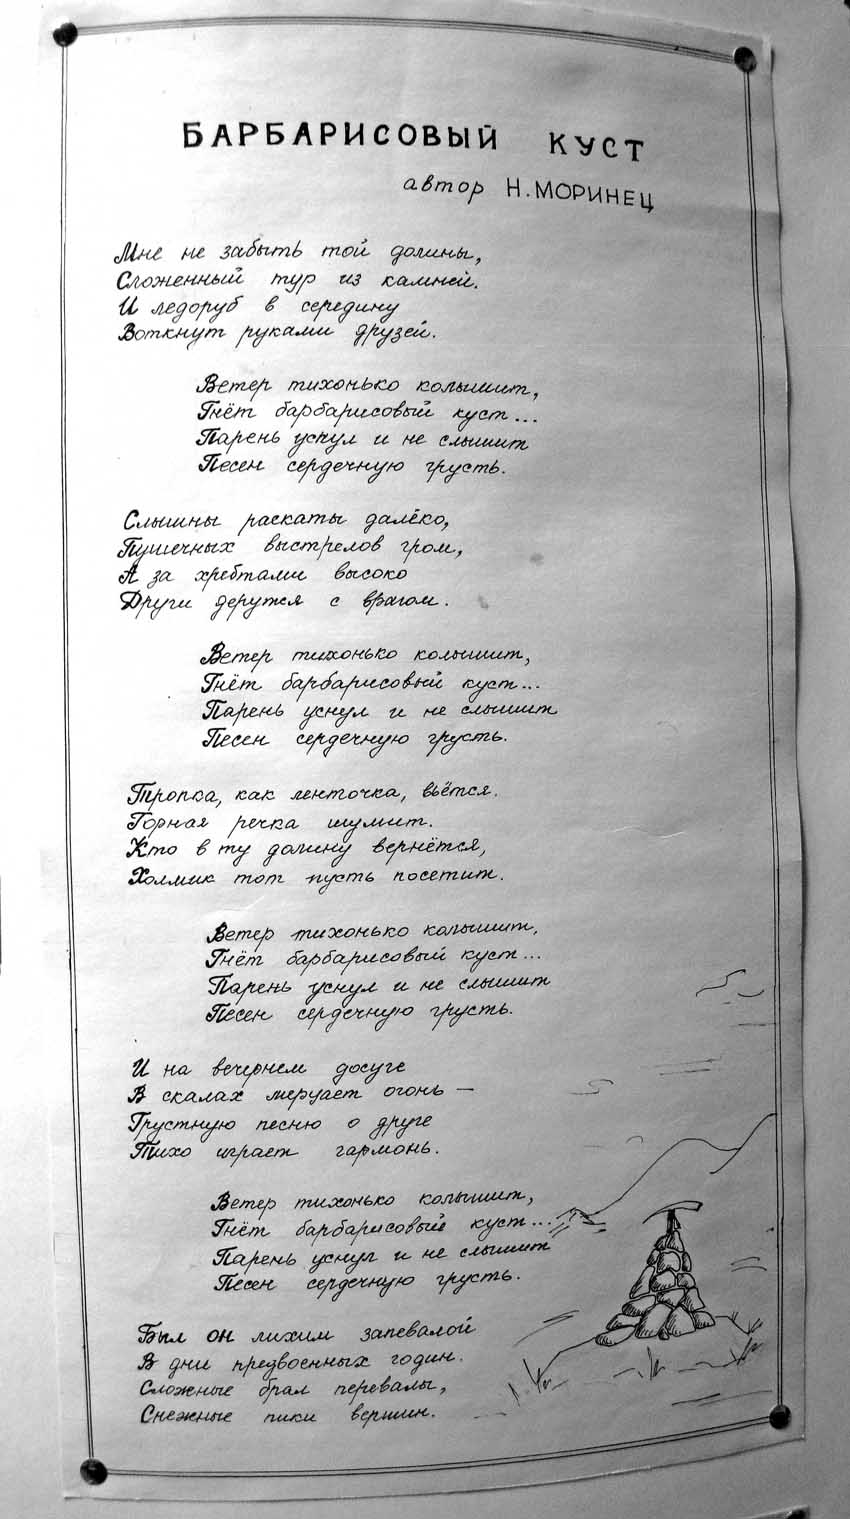 БАРБАРИСОВЫЙ КУСТ
автор Н.МОРИНЕЦ
Мне не забыть той долины,
Сложенный тур из камней.
И ледоруб в середину
Воткнут руками друзей.
Ветер тихонько колышит,
Гнёт барбарисовый куст...
Парень уснул и не слышит
Песен сердечную грусть.
Слышны раскаты далёко,
Пушечных выстрелов гром,
А за хребтами высоко
Други дерутся с врагом.
Ветер тихонько колышит,
Гнёт барбарисовый куст...
Парень уснул и не слышит
Песен сердечную грусть.
Тропка, как ленточка, вьётся.
Горная речка шумит.
Кто в ту долину вернётся,
Холмик тот пусть посетит.
Ветер тихонько колышит,
Гнёт барбарисовый куст...
Парень уснул и не слышит
Песен сердечную грусть.
И на вечернем досуге
В скалах мерцает огонь —
Грустную песню о друге
Тихо играет гармонь.
Ветер тихонько колышит,
Гнёт барбарисовый куст...
Парень уснул и не слышит
Песен сердечную грусть.
Был он лихим запевалой
В дни предвоенных годин.
Сложные брал перевалы,
Снежные пики вершин.